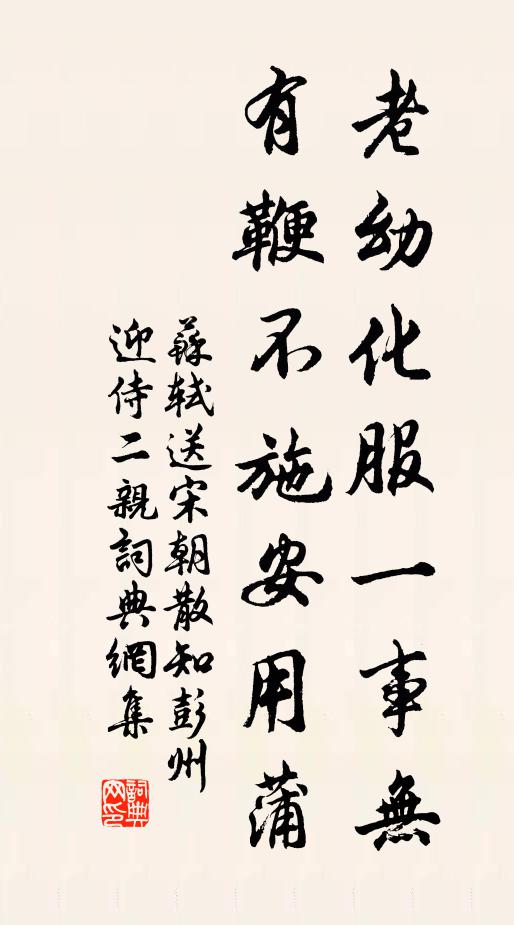 老幼化服一事無
有鞭不施安用蒲
蘇軾送宋朝散知彭州
迎侍二親詞典網集
詞典
网印